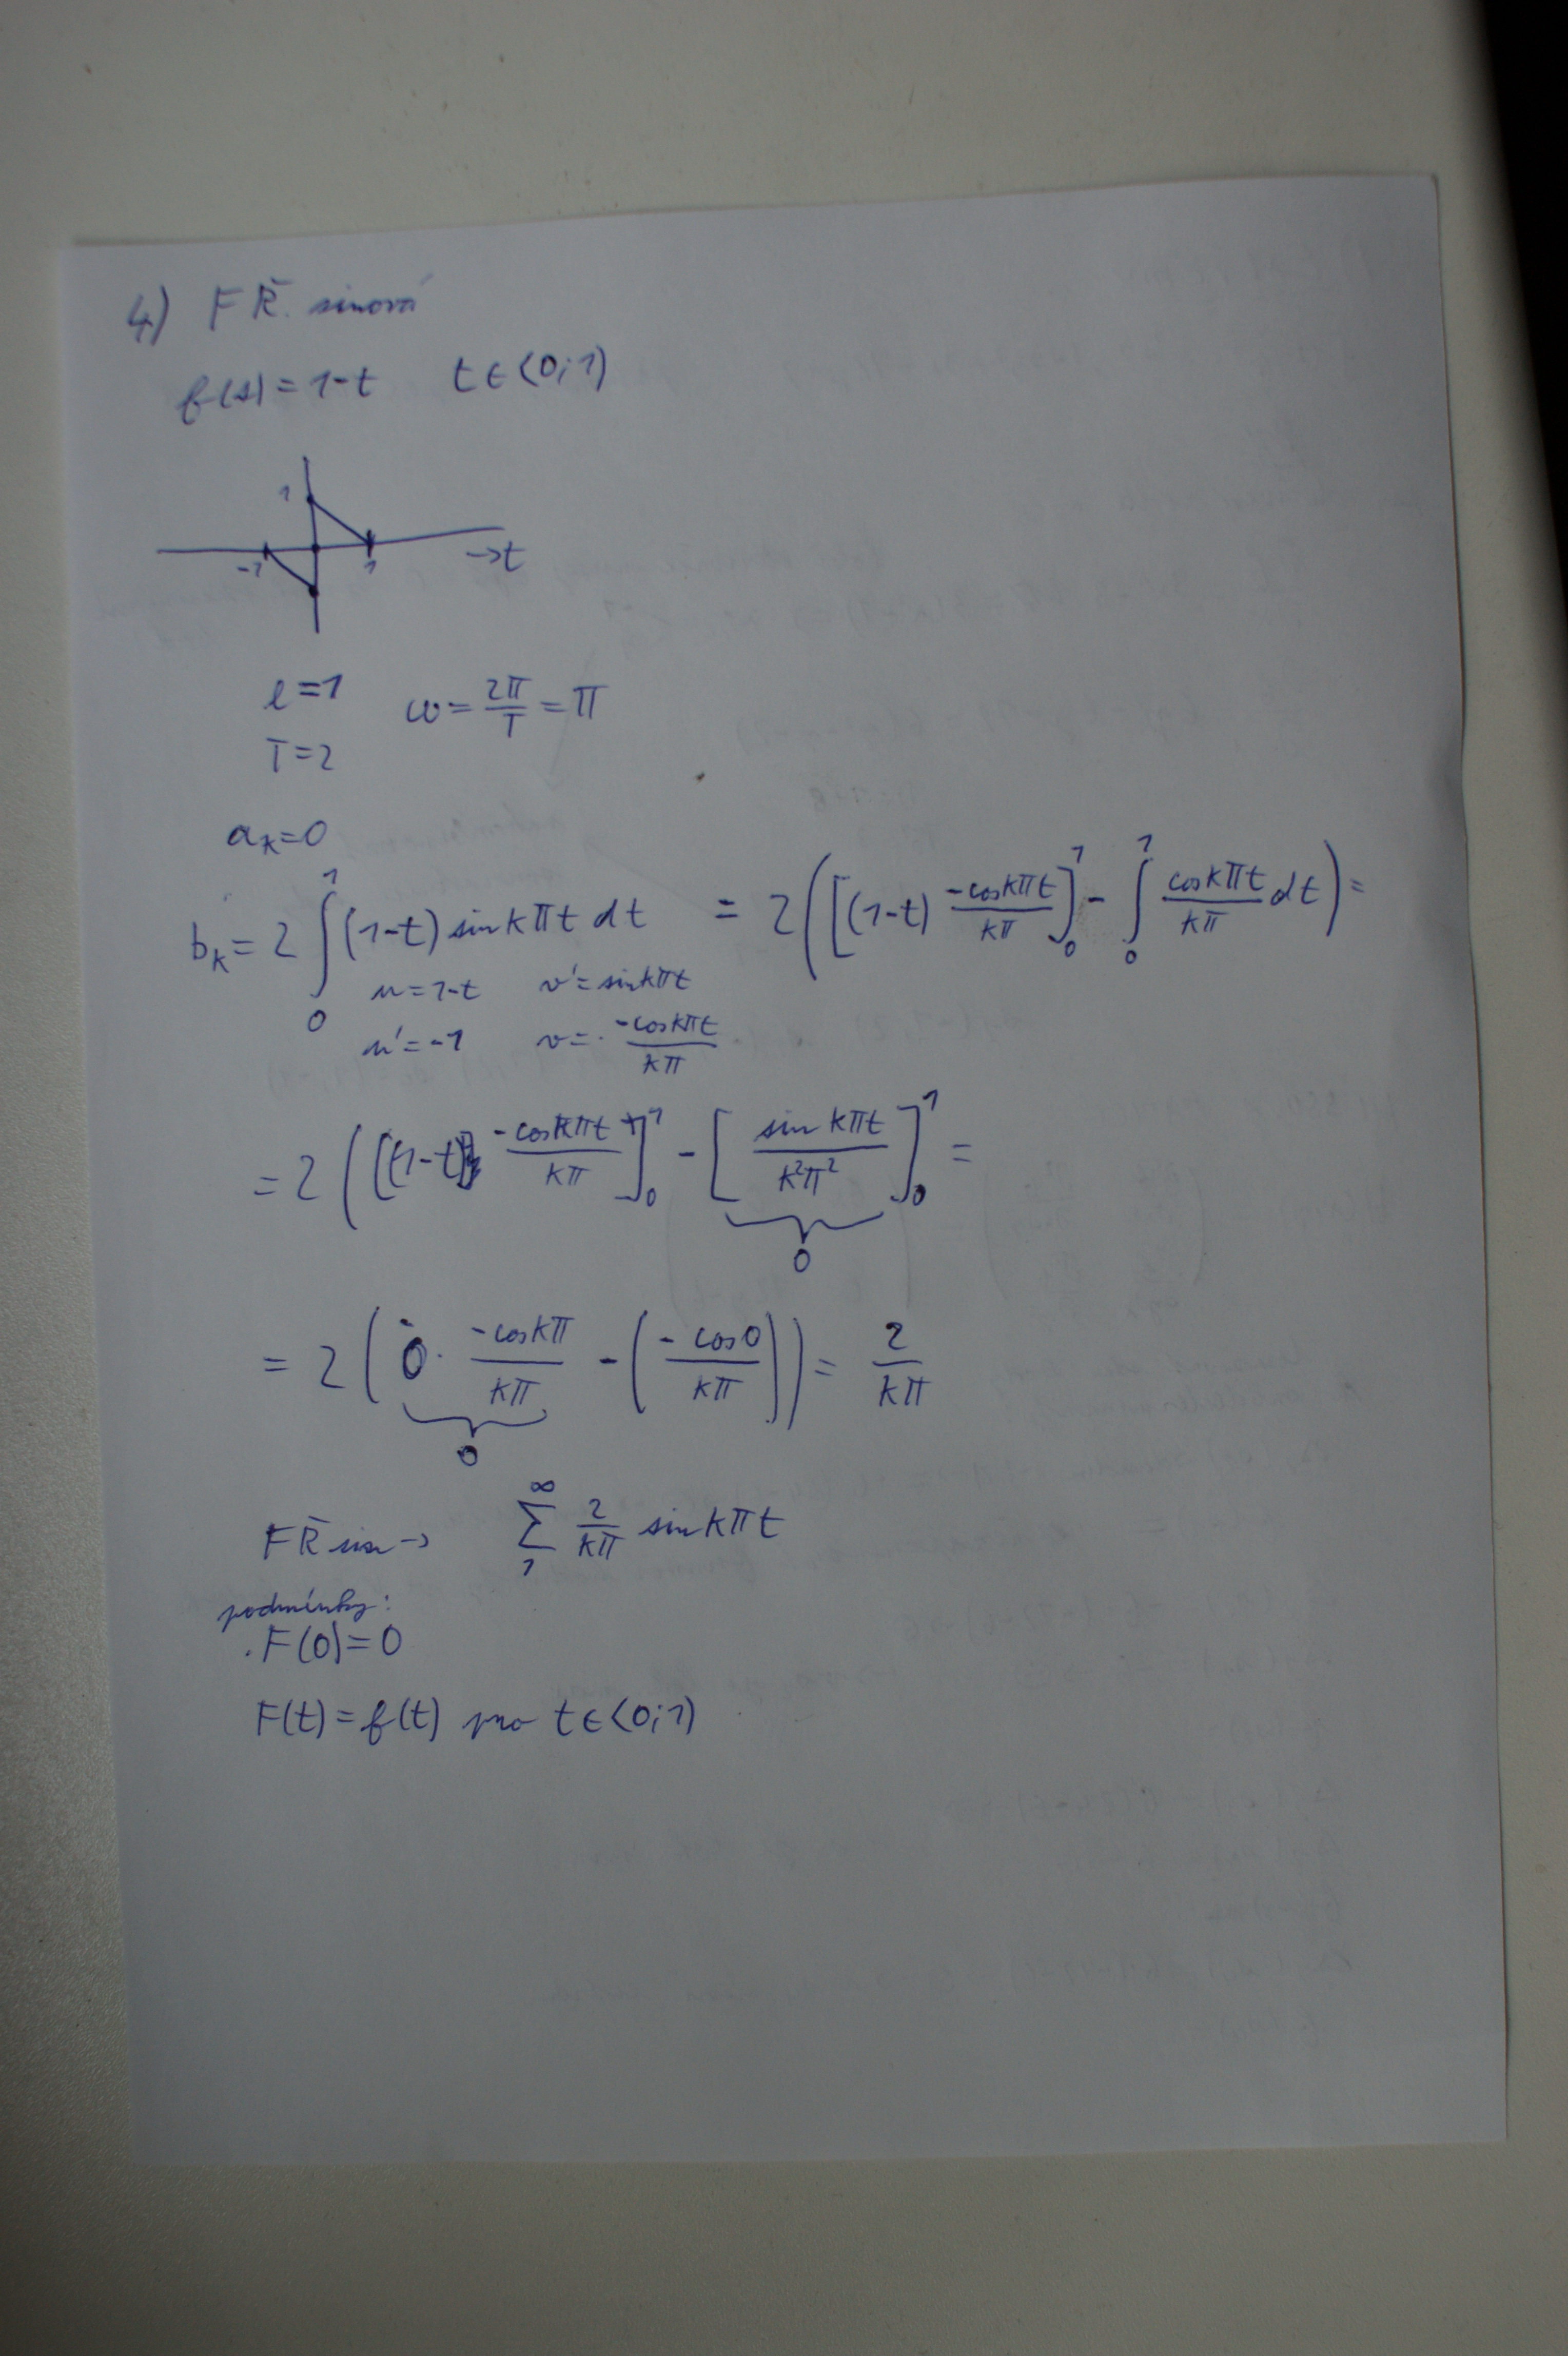 4) FŘ. sinová
f(t) = 1-t t ∈ ⟨0;1)
1
-1 1 →t
l = 1 ω = 2π/T = π
T = 2
a_k = 0
b_k = 2 ∫_0^1 (1-t) sin kπt dt = 2([(1-t) -cos kπt/kπ]_0^1 - ∫_0^1 cos kπt/kπ dt) =
u = 1-t v' = sin kπt
u' = -1 v = -cos kπt/kπ
= 2([(1-t) -cos kπt/kπ]_0^1 - [sin kπt/k²π²]_0^1 =
0
= 2(0 · -cos kπ/kπ - (-cos 0/kπ)) = 2/kπ
0
FŘ sin → ∑_1^∞ 2/kπ sin kπt
podmínky:
F(0) = 0
F(t) = f(t) pro t ∈ ⟨0;1)